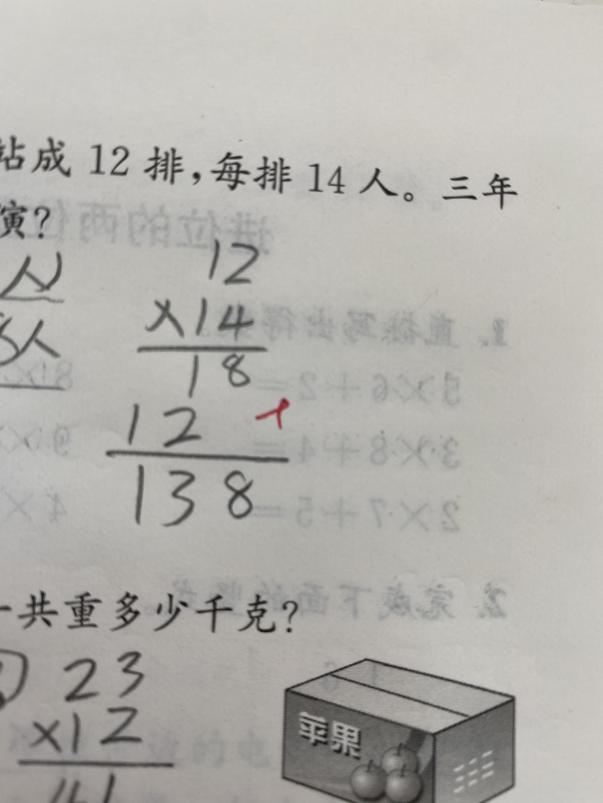 站成12排,每排14人。三年
演?
人)
人
12
×14
18
12
138
一共重多少千克?
23
×12
苹果